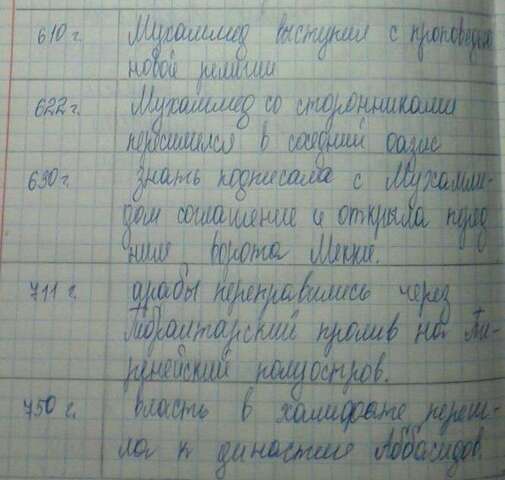 610 г. Мухаммед выступил с проповедью
новой религии
622 г. Мухаммед со сторонниками
переселился в соседний оазис
630 г. знать подписала с Мухамме-
дом соглашение и открыла перед
ним ворота Мекки.
711 г. арабы переправились через
Гибралтарский пролив на Пи-
ренейский полуостров.
750 г. власть в халифате переш-
ла к династии Аббасидов.